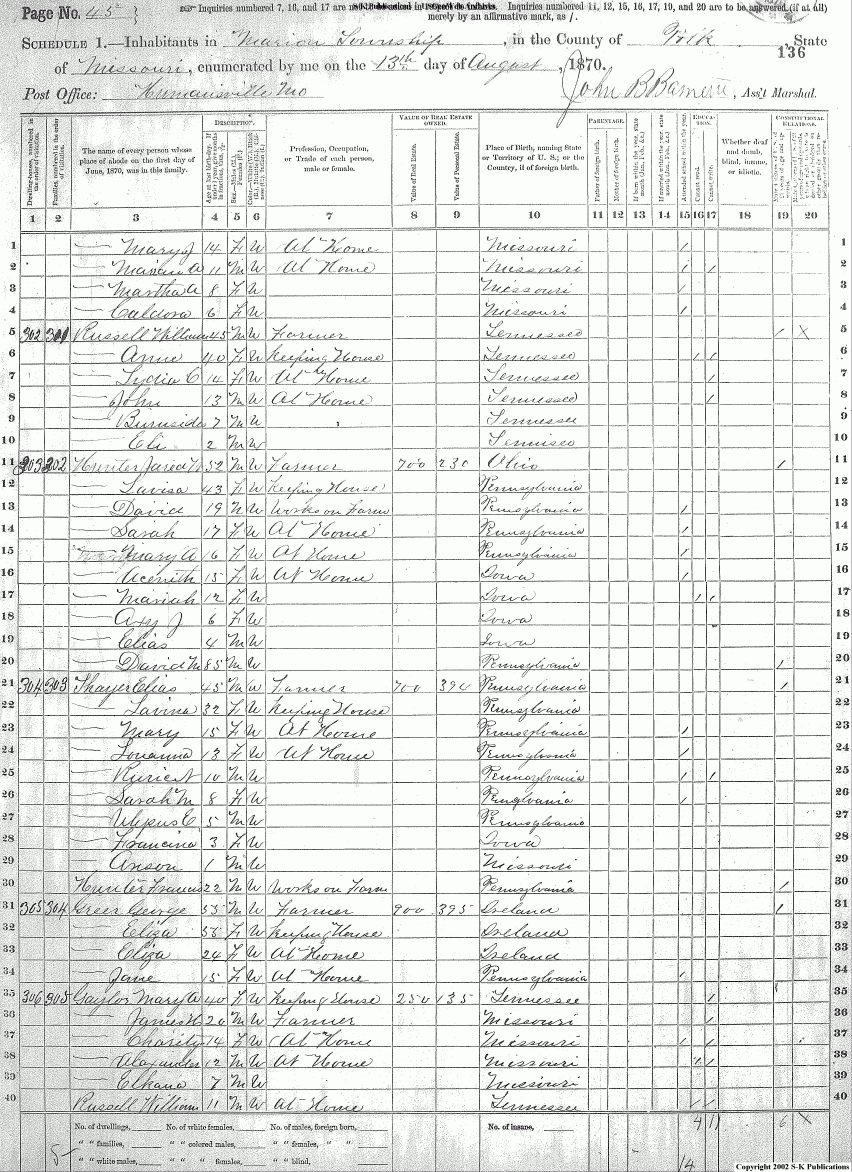 Page No. 45 } Inquiries numbered 7, 16, and 17 are not to be asked in respect to infants. Inquiries numbered 11, 12, 15, 16, 17, 19, and 20 are to be answered (if at all)
merely by an affirmative mark, as /.
SCHEDULE 1.—Inhabitants in Marion Township, in the County of Polk, State
136
of Missouri, enumerated by me on the 13th day of August, 1870.
Post Office: Humansville Mo
John B Barnett, Ass't Marshal.
The name of every person whose place of abode on the first day of June, 1870, was in this family.
DESCRIPTION.
Profession, Occupation, or Trade of each person, male or female.
VALUE OF REAL ESTATE OWNED.
Value of Real Estate.
Value of Personal Estate.
Place of Birth, naming State or Territory of U. S.; or the Country, if of foreign birth.
PARENTAGE.
Father of foreign birth.
Mother of foreign birth.
EDUCATION.
Whether deaf and dumb, blind, insane, or idiotic.
CONSTITUTIONAL RELATIONS.
1 2 3 4 5 6 7 8 9 10 11 12 13 14 15 16 17 18 19 20
1 — Mary J 14 F W At Home Missouri / 1
2 — A 11 M W At Home Missouri / / 2
3 — Martha A 8 F W Missouri / 3
4 — Caldora 6 F W Missouri / 4
5 302 301 Russell William 45 M W Farmer Tennessee / X 5
6 — Anne 40 F W Keeping House Tennessee / / 6
7 — Lydia C 14 F W At Home Tennessee / 7
8 — John 13 M W At Home Tennessee / 8
9 — Burnsides 7 M W Tennessee 9
10 — Eli 2 M W Tennessee 10
11 303 302 Hunter Jared 52 M W Farmer 700 230 Ohio / 11
12 — Lavisa 43 F W Keeping House Pennsylvania 12
13 — David 19 M W Works on Farm Pennsylvania / 13
14 — Sarah 17 F W At Home Pennsylvania / 14
15 — Mary A 16 F W At Home Pennsylvania / 15
16 — 15 F W At Home Iowa / 16
17 — Mariah 12 F W Iowa / / 17
18 — Axy J 6 F W Iowa 18
19 — Elias 4 M W Iowa 19
20 — David M 85 M W Pennsylvania / 20
21 304 303 Thayer Elias 45 M W Farmer 700 394 Pennsylvania / 21
22 — Lavina 32 F W Keeping House Pennsylvania 22
23 — Mary 15 F W At Home Pennsylvania / 23
24 — Louanna 13 F W At Home Pennsylvania / 24
25 — 10 M W Pennsylvania / / 25
26 — Sarah M 8 F W Pennsylvania / 26
27 — 5 M W Pennsylvania 27
28 — Francina 3 F W Iowa 28
29 — Anson 1 M W Missouri 29
30 Hunter Francis 22 M W Works on Farm Pennsylvania / 30
31 305 304 Greer George 55 M W Farmer 900 395 Ireland / 31
32 — Eliza 53 F W Keeping House Ireland 32
33 — Eliza 24 F W At Home Ireland 33
34 — Jane 15 F W At Home Pennsylvania / 34
35 306 305 Gaylor Mary A 40 F W Keeping House 250 135 Tennessee / 35
36 — James 20 M W Farmer Missouri / 36
37 — Charity 14 F W At Home Missouri / / 37
38 — Alexander 12 M W At Home Missouri / / 38
39 — Elkana 7 M W Missouri 39
40 Russell William 11 M W At Home Tennessee / / 40
No. of dwellings, ___ No. of white females, ___ No. of males, foreign born, ___ No. of insane, ___ 4 11 6 X
" " families, ___ " " colored males, ___ " " females, " " ___
5 " " white males, ___ " " " females, ___ " " blind, ___ 14
Copyright 2002 S-K Publications